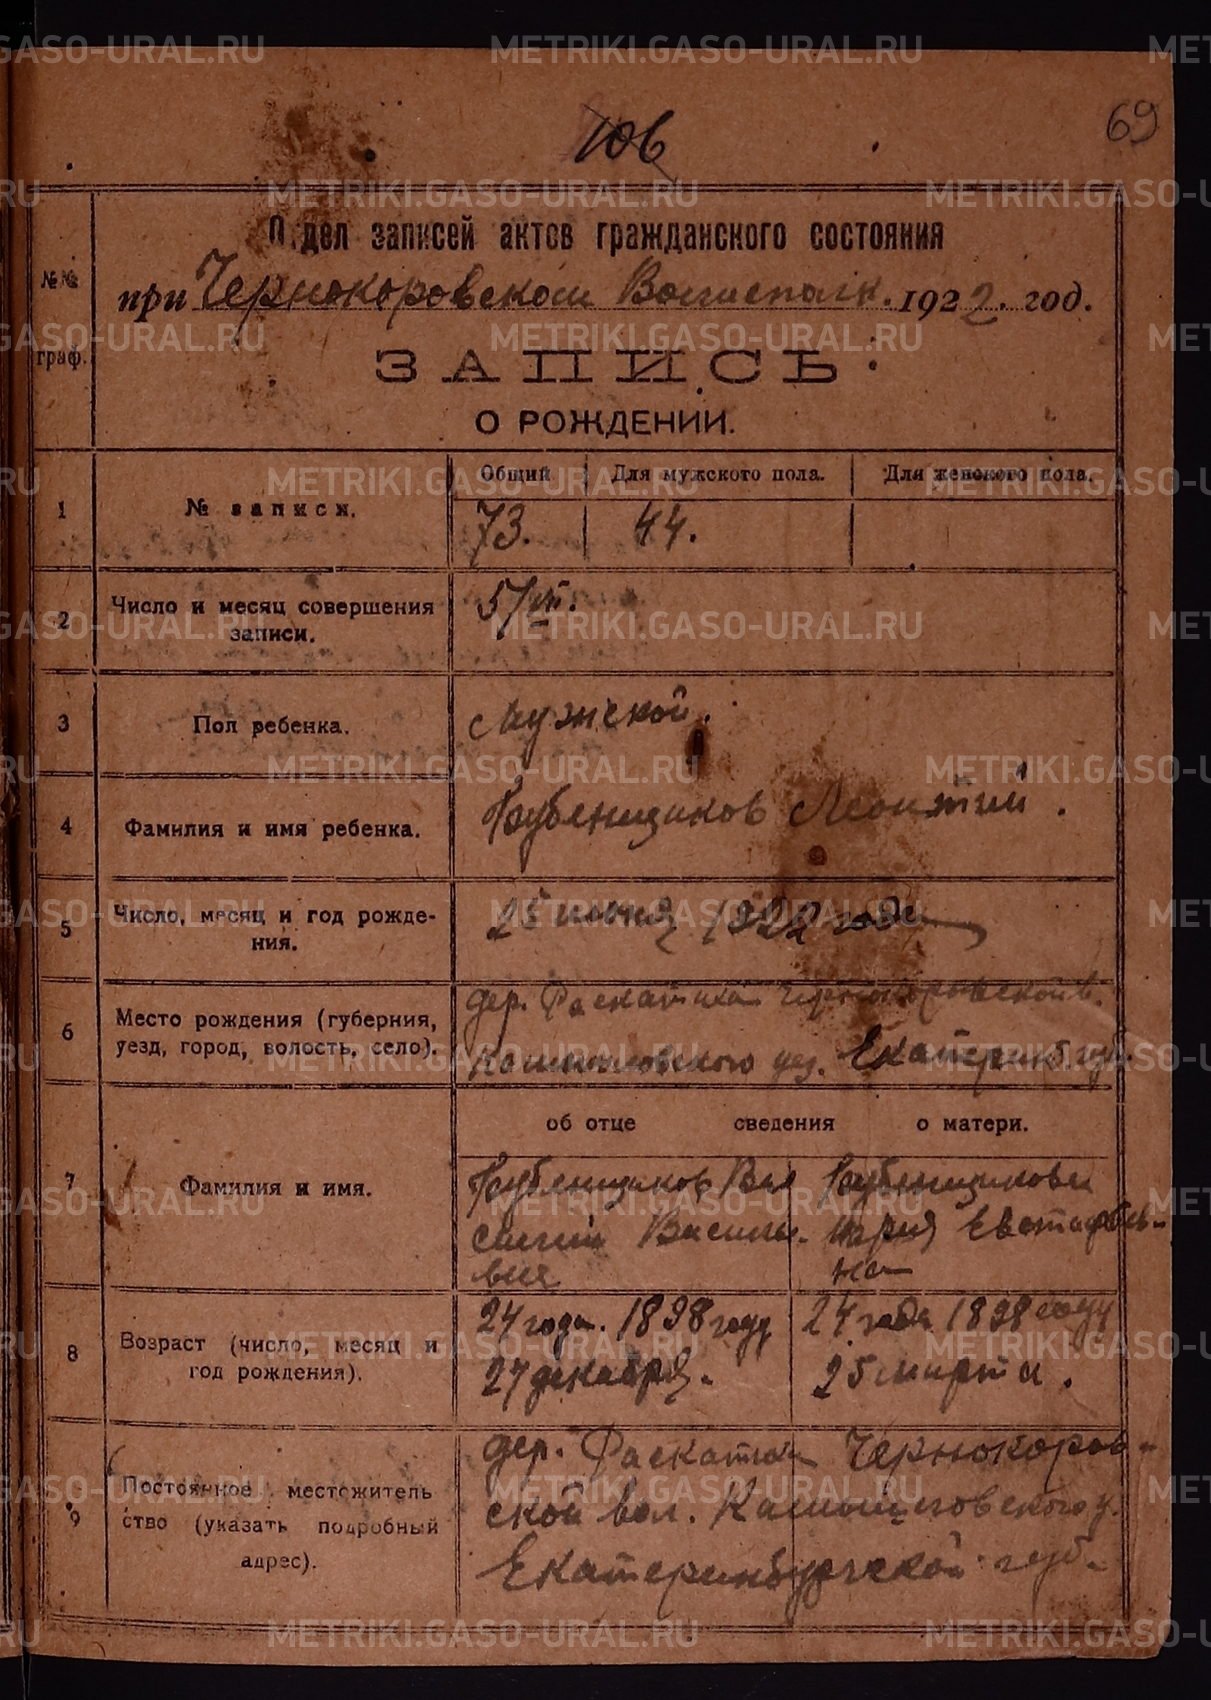 69
106
Отдел записей актов гражданского состояния
при Чернокоровском Волисполк. 1922 год.
№№ граф.
ЗАПИСЬ
О РОЖДЕНИИ.
Общий Для мужского пола. Для женского пола.
1 № записи. 73. 44.
2 Число и месяц совершения 5/VII.
записи.
3 Пол ребенка. Мужской.
4 Фамилия и имя ребенка. Бубенщиков Леонтий.
5 Число, месяц и год рожде- 25 июня 1922 года
ния.
6 Место рождения (губерния, дер. Раскатиха Чернокоровской в.
уезд, город, волость, село). Камышловского уез. Екатеринб. губ.
об отце сведения о матери.
7 Фамилия и имя. Бубенщиков Ва Бубенщикова
силий Василь- Мария Евстафьев-
вич на
8 Возраст (число, месяц и 24 года. 1898 году 24 года 1898 году
год рождения). 27 декабря. 25 марта.
9 Постоянное местожитель дер. Раскатиха Чернокоров-
ство (указать подробный ской вол. Камышловского у.
адрес). Екатеринбургской губ.
METRIKI.GASO-URAL.RU